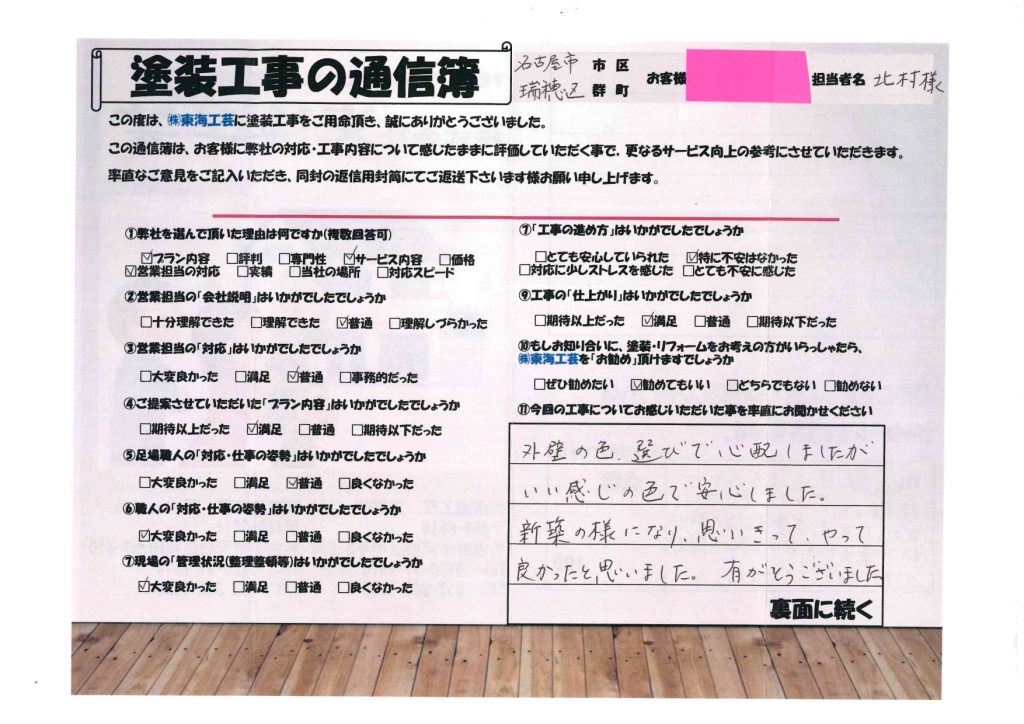 塗装工事の通信簿
名古屋市 市 区
瑞穂区 群 町
お客様
担当者名 北村様
この度は、㈱東海工芸に塗装工事をご用命頂き、誠にありがとうございました。
この通信簿は、お客様に弊社の対応・工事内容について感じたままに評価していただく事で、更なるサービス向上の参考にさせていただきます。
率直なご意見をご記入いただき、同封の返信用封筒にてご返送下さいます様お願い申し上げます。
①弊社を選んで頂いた理由は何ですか(複数回答可)
☑プラン内容 □評判 □専門性 ☑サービス内容 □価格
☑営業担当の対応 □実績 □当社の場所 □対応スピード
②営業担当の「会社説明」はいかがでしたでしょうか
□十分理解できた □理解できた ☑普通 □理解しづらかった
③営業担当の「対応」はいかがでしたでしょうか
□大変良かった □満足 ☑普通 □事務的だった
④ご提案させていただいた「プラン内容」はいかがでしたでしょうか
□期待以上だった ☑満足 □普通 □期待以下だった
⑤足場職人の「対応・仕事の姿勢」はいかがでしたでしょうか
□大変良かった □満足 ☑普通 □良くなかった
⑥職人の「対応・仕事の姿勢」はいかがでしたでしょうか
☑大変良かった □満足 □普通 □良くなかった
⑦現場の「管理状況(整理整頓等)はいかがでしたでしょうか
☑大変良かった □満足 □普通 □良くなかった
⑦「工事の進め方」はいかがでしたでしょうか
□とても安心していられた ☑特に不安はなかった
□対応に少しストレスを感じた □とても不安に感じた
⑨工事の「仕上がり」はいかがでしたでしょうか
□期待以上だった ☑満足 □普通 □期待以下だった
⑩もしお知り合いに、塗装・リフォームをお考えの方がいらっしゃたら、
㈱東海工芸を「お勧め」頂けますでしょうか
□ぜひ勧めたい ☑勧めてもいい □どちらでもない □勧めない
⑪今回の工事についてお感じいただいた事を率直にお聞かせください
外壁の色、選びで心配しましたが
いい感じの色で安心しました。
新築の様になり、思いきって、やって
良かったと思いました。 有がとうございました
裏面に続く